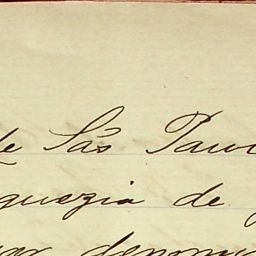 de São Paul
guezia de
gar denomi